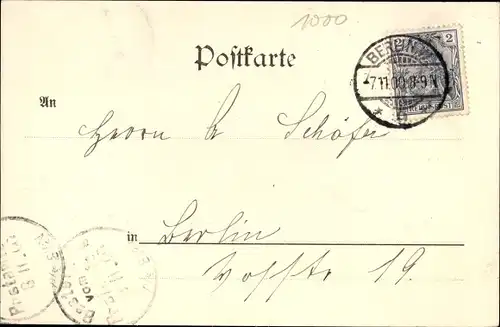 1000
Postkarte
2
BERLIN W.
7.11.00.8-9N
An
Herrn A Schäfer
in Berlin
Vossstr 19.